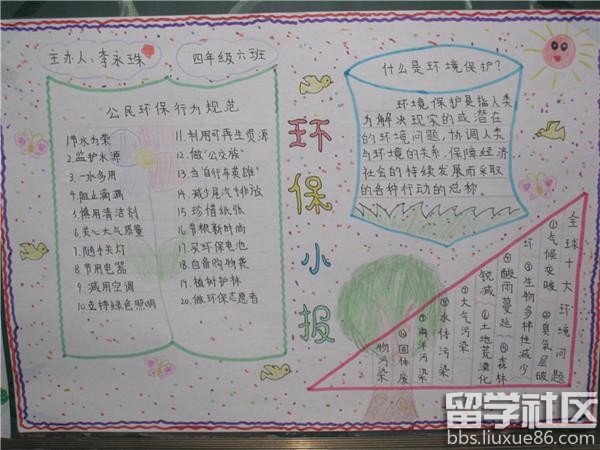 主办人:李永珠
四年级六班
公民环保行为规范
1.节水为荣
2.监护水源
3.一水多用
4.阻止滴漏
5.慎用清洁剂
6.关心大气质量
7.随手关灯
8.节用电器
9.减用空调
10.支持绿色照明
11.利用可再生资源
12.做“公交族”
13.当“自行车英雄”
14.减少尾汽排放
15.珍惜纸张
16.节粮新时尚
17.买环保电池
18.自备购物袋
19.植树护林
20.做环保志愿者
环保小报
什么是环境保护?
环境保护是指人类
为解决现实的或潜在
的环境问题,协调人类
与环境的关系,保障经济
社会的持续发展而采取
的各种行动的总称。
全球十大环境问题
①气候变暖 ②臭氧层破
环 ③生物多样性减少
④酸雨蔓延 ⑤森林
锐减 ⑥土地荒漠化
⑦大气污染
⑧水体污染
⑨海洋污染
⑩固体废
物污染
留学社区
bbs.liuxue86.com